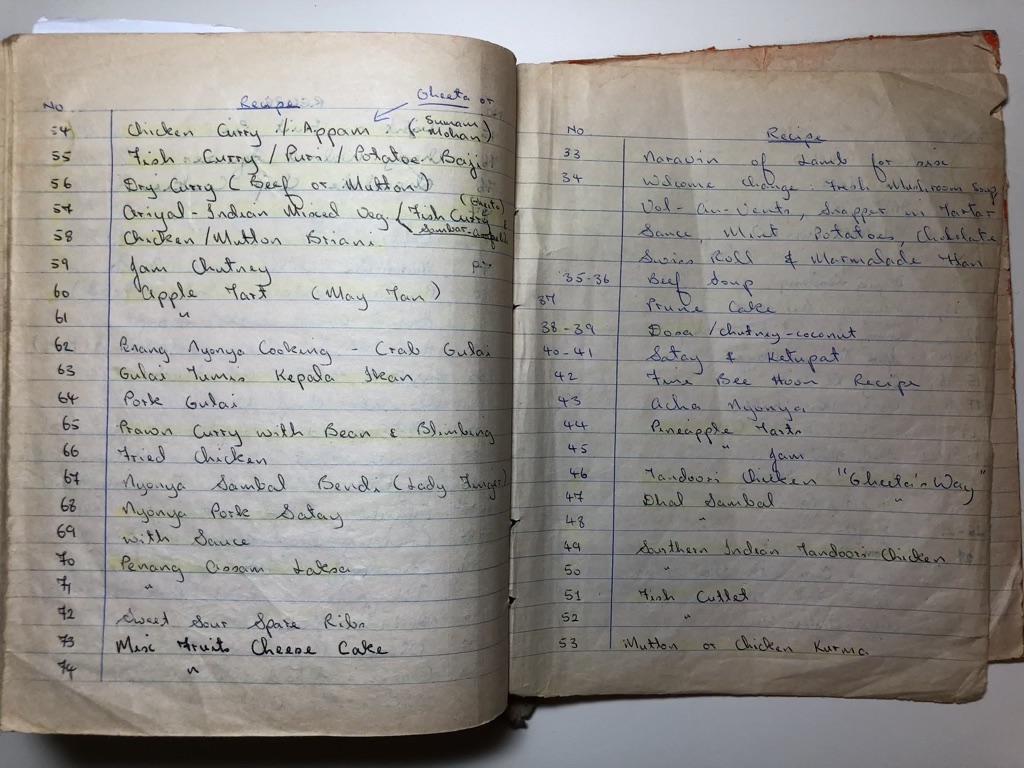 Gheeta or
No Recipe
54 Chicken Curry / Appam (Sunram Mohan)
55 Fish Curry / Puri / Potatoe Baji
56 Dry Curry (Beef or Mutton)
57 Ariyal - Indian Mixed Veg (Gheeta) Fish Curry
58 Chicken / Mutton Briani Sambar
59 Jam Chutney
60 Apple Tart (May Tan)
61 "
62 Penang Nyonya Cooking - Crab Gulai
63 Gulai Tumis Kepala Ikan
64 Pork Gulai
65 Prawn Curry with Bean & Blimbing
66 Fried Chicken
67 Nyonya Sambal Bendi (Lady Finger)
68 Nyonya Pork Satay
69 with Sauce
70 Penang Assam Laksa
71 "
72 Sweet Sour Spare Ribs
73 Misc Fruits Cheese Cake
74 "
No Recipe
33 Navarin of Lamb for six
34 Welcome Change: Fresh Mushroom Soup
Vol-au-vents, Snapper in Tartar
Sauce, Mint Potatoes, Chokolate
Swiss Roll & Marmalade
35-36 Beef Soup
37 Prune Cake
38-39 Dosa / chutney-coconut
40-41 Satay & Ketupat
42 Fine Bee Hoon Recipe
43 Acha Nyonya
44 Pineapple Tarts
45 " Jam
46 Tandoori Chicken "Gheeta's Way"
47 Dhal Sambal "
48 "
49 Southern Indian Tandoori Chicken
50 "
51 Fish Cutlet
52 "
53 Mutton or Chicken Kurma